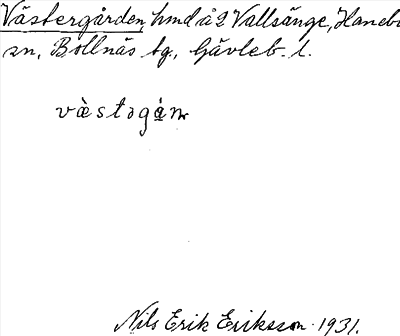 Västergården, hmd å 2 Vallsänge, Hanebo
sn, Bollnäs tg, Gävleb. l.
Nils Erik Eriksson 1931.